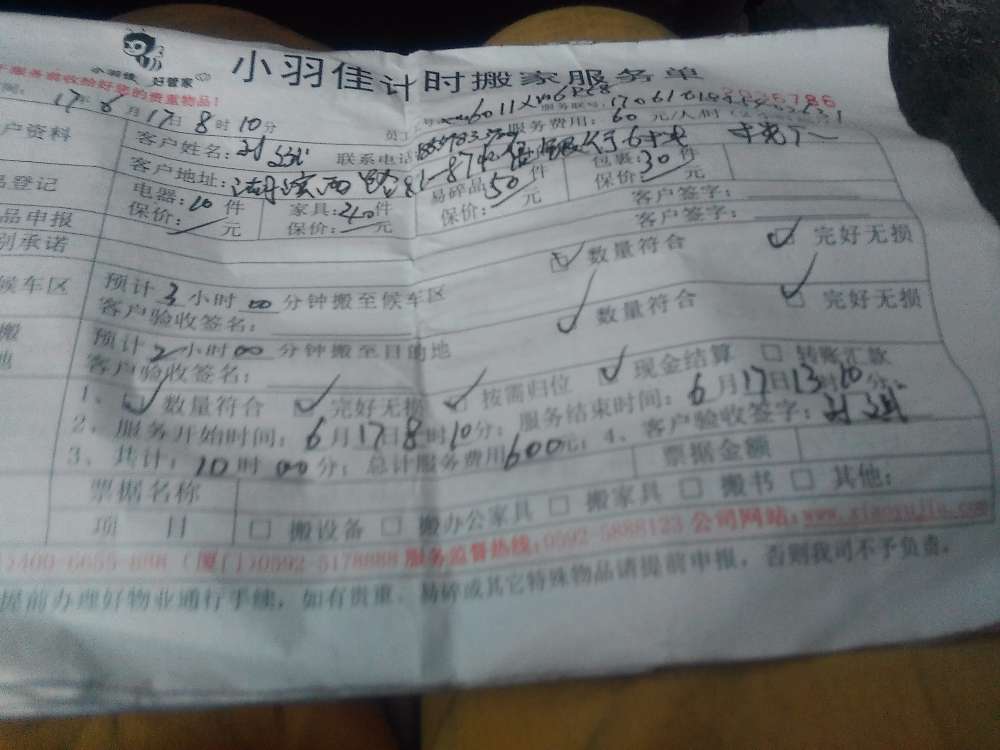 小羽佳 好管家
小羽佳计时搬家服务单
服务前收拾好您的贵重物品！
17年6月17日8时10分
服务联号：
服务费用：60元/人时
户资料
客户姓名：
联系电话
客户地址：湖滨西路
品登记
电器：10件
家具：20件
易碎品50件
包裹：30件
保价：/元
保价：/元
保价：/元
保价：/元
品申报
客户签字：
别承诺
客户签字：
候车区
预计3小时00分钟搬至候车区
数量符合
完好无损
客户验收签名：
搬
预计2小时00分钟搬至目的地
数量符合
完好无损
地
客户验收签名：
1、数量符合 完好无损 按需归位 现金结算 转账汇款
2、服务开始时间：6月17日8时10分；服务结束时间：6月17日13时10分；
3、共计：10时00分；总计服务费用600元；4、客户验收签字：
票据名称
票据金额
项 目
搬设备 搬办公家具 搬家具 搬书 其他：
400-6655-888（厦门）0592-5178888 服务监督热线：0592-5888123 公司网站：www.xiaoyujia.com
提前办理好物业通行手续，如有贵重、易碎或其它特殊物品请提前申报，否则我司不予负责。